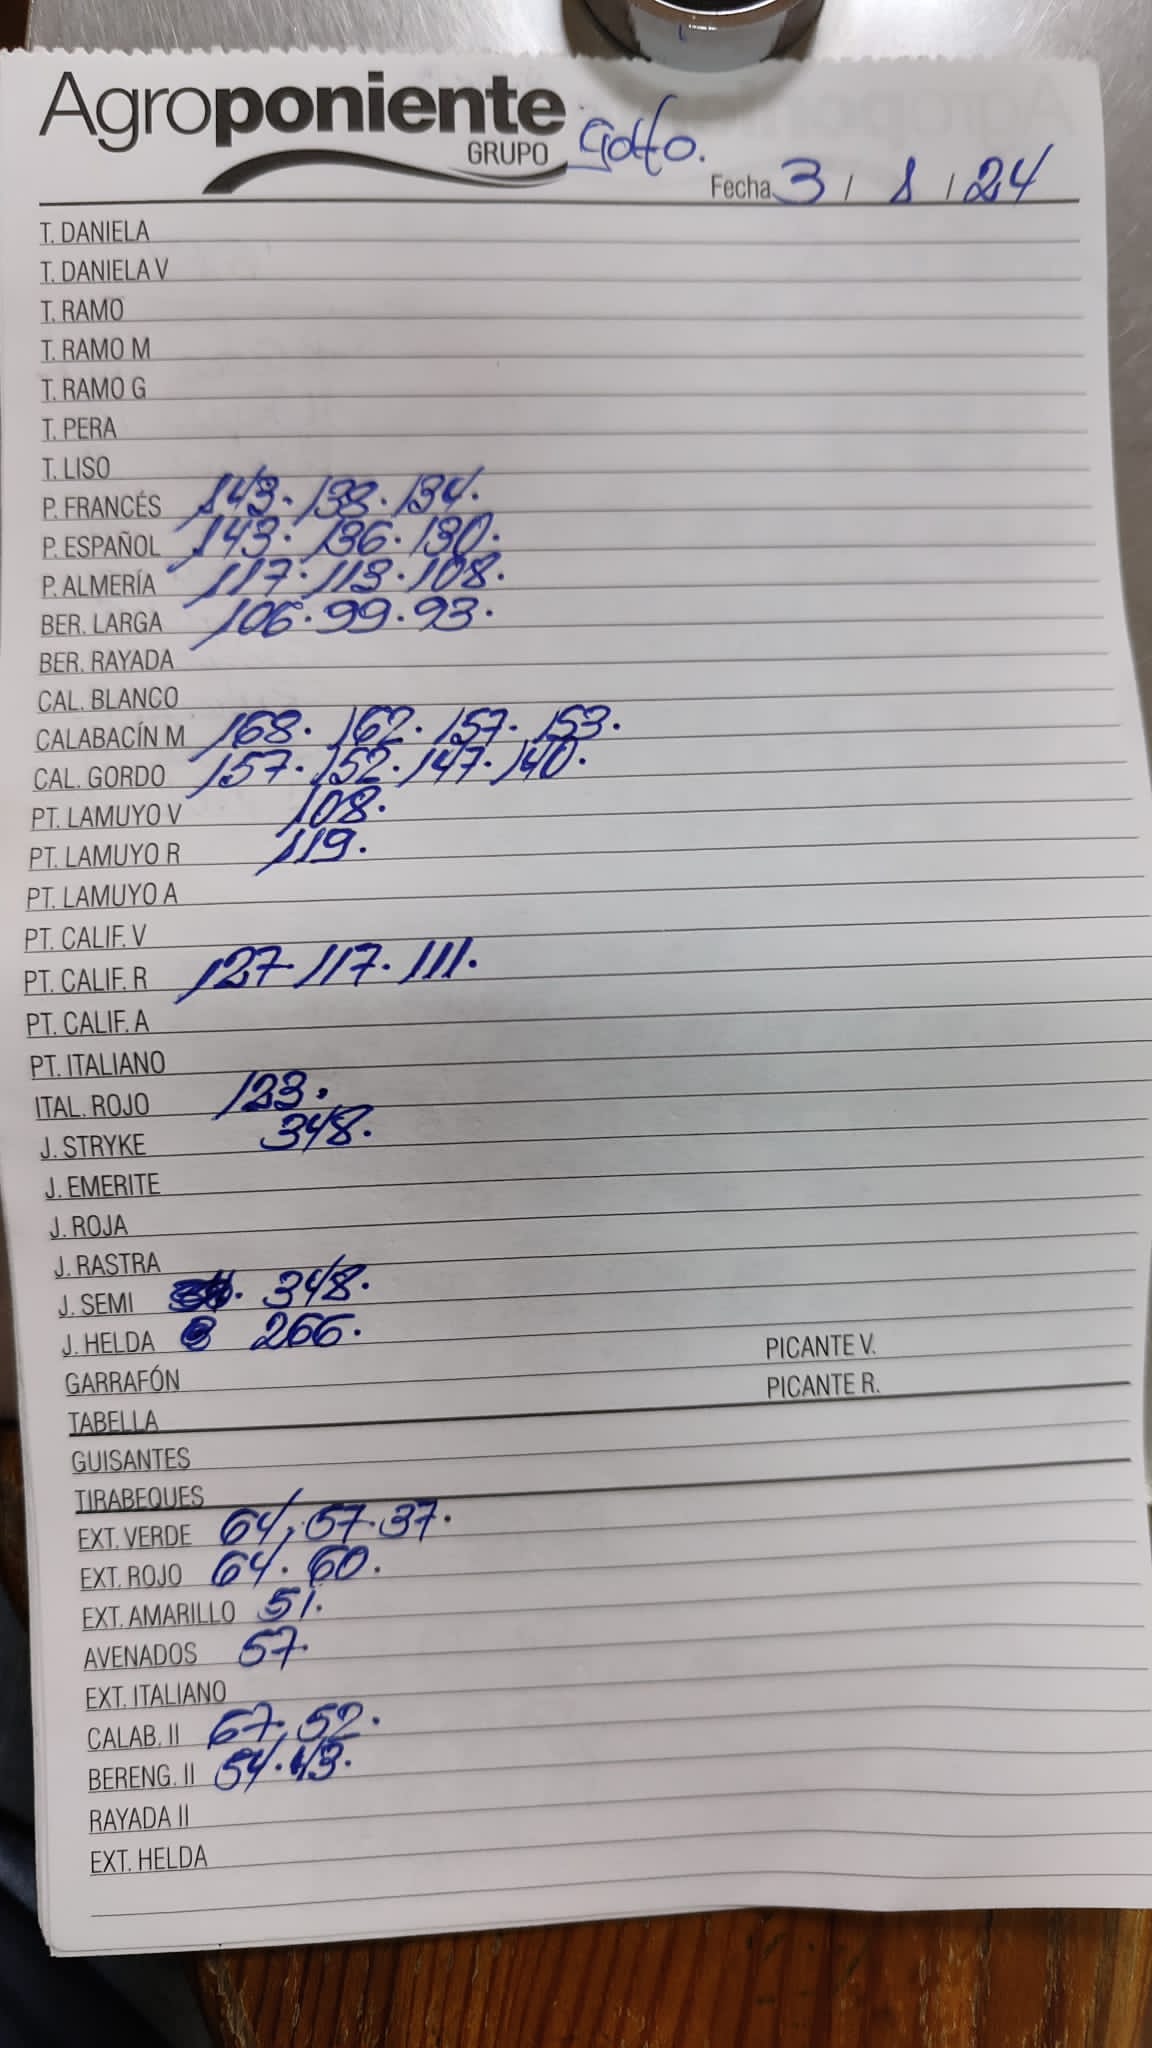 Agroponiente
GRUPO
Fecha 3 / 8 / 24
T. DANIELA
T. DANIELA V
T. RAMO
T. RAMO M
T. RAMO G
T. PERA
T. LISO
P. FRANCÉS 143. 138. 134.
P. ESPAÑOL 143. 136. 130.
P. ALMERÍA 117. 113. 108.
BER. LARGA 106. 99. 93.
BER. RAYADA
CAL. BLANCO
CALABACÍN M 168. 162. 157. 153.
CAL. GORDO 157. 152. 147. 140.
PT. LAMUYO V 108.
PT. LAMUYO R 119.
PT. LAMUYO A
PT. CALIF. V
PT. CALIF. R 127. 117. 111.
PT. CALIF. A
PT. ITALIANO
ITAL. ROJO 123.
J. STRYKE 348.
J. EMERITE
J. ROJA
J. RASTRA
J. SEMI 348.
J. HELDA 266.
PICANTE V.
GARRAFÓN
PICANTE R.
TABELLA
GUISANTES
TIRABEQUES
EXT. VERDE 64. 57. 37.
EXT. ROJO 64. 60.
EXT. AMARILLO 51.
AVENADOS 57.
EXT. ITALIANO
CALAB. II 67. 52.
BERENG. II 54. 43.
RAYADA II
EXT. HELDA